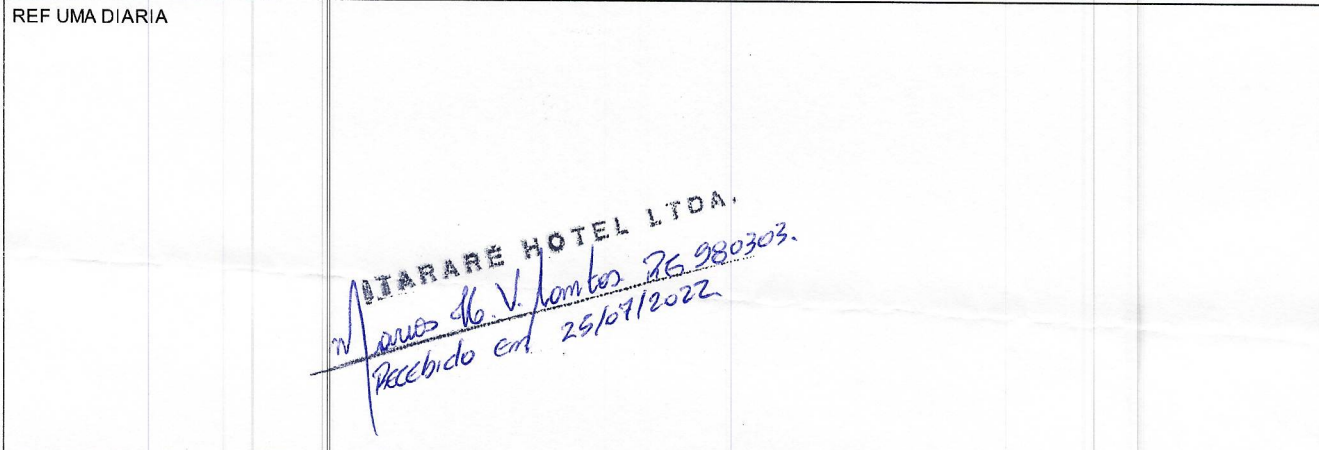 REF UMA DIARIA
ITARARÉ HOTEL LTDA.
Marcos H. V. Santos RG 980303.
Recebido em 25/07/2022